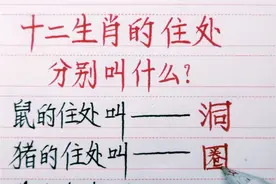 十二生肖的住处
分别叫什么?
鼠的住处叫——洞
猪的住处叫——圈